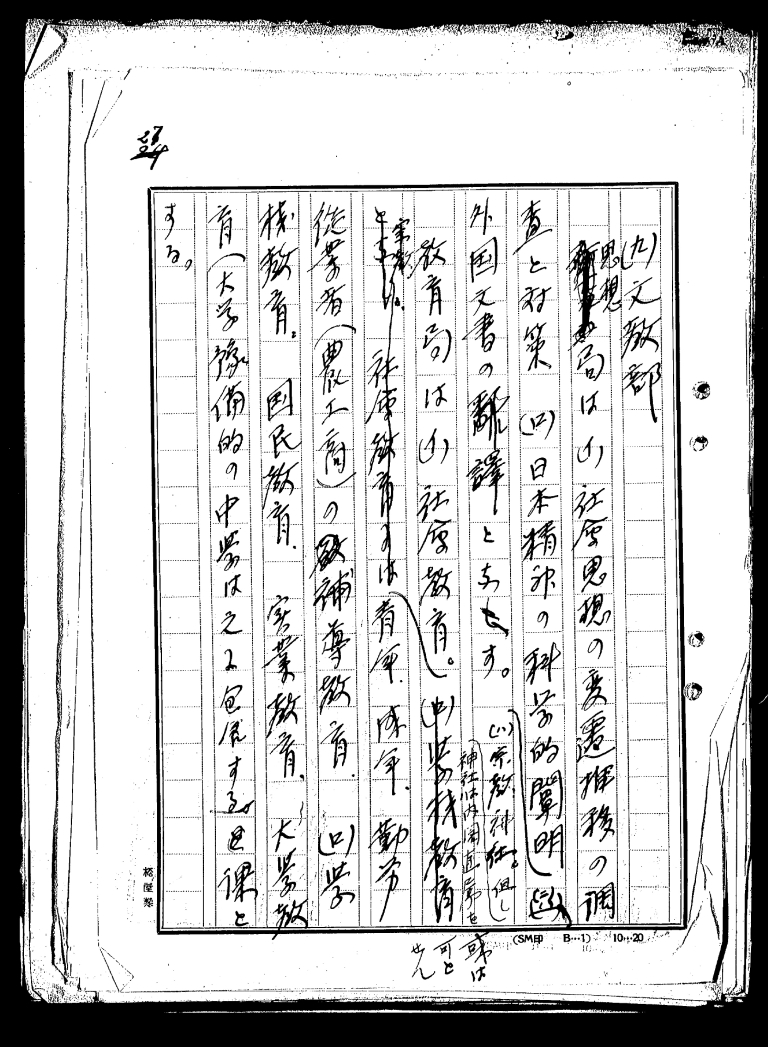 27
24
(九)文教部
思想
局は(イ)社会思想の変遷推移の調
査と対策 (ロ)日本精神の科学的闡明
外国文書の翻譯とす。
(ハ)宗教神社。但し
神社は内閣直属を
可とせん
宗教
教育局は(イ)社会教育。(ロ)学校教育
と 社会教育 は青年、成年、勤労
従業者(農工商)の補導教育、(ロ)学
校教育。国民教育、実業教育、大学教
育(大学豫備的の中学は之に包含する)課と
する。
(SM印 B…1) 10…20